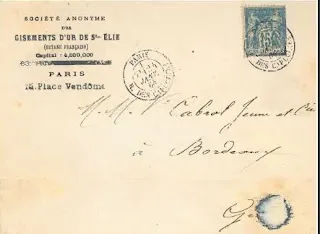 SOCIÉTÉ ANONYME
DES
GISEMENTS D'OR DE Ste-ÉLIE
(GUYANE FRANÇAISE)
Capital : 4,000,000
PARIS
14, Place Vendôme
PARIS
JANV.
R. DES CAPUC
DES CAPUC
M. M. Cabrol Jeune et Cie
à Bordeaux